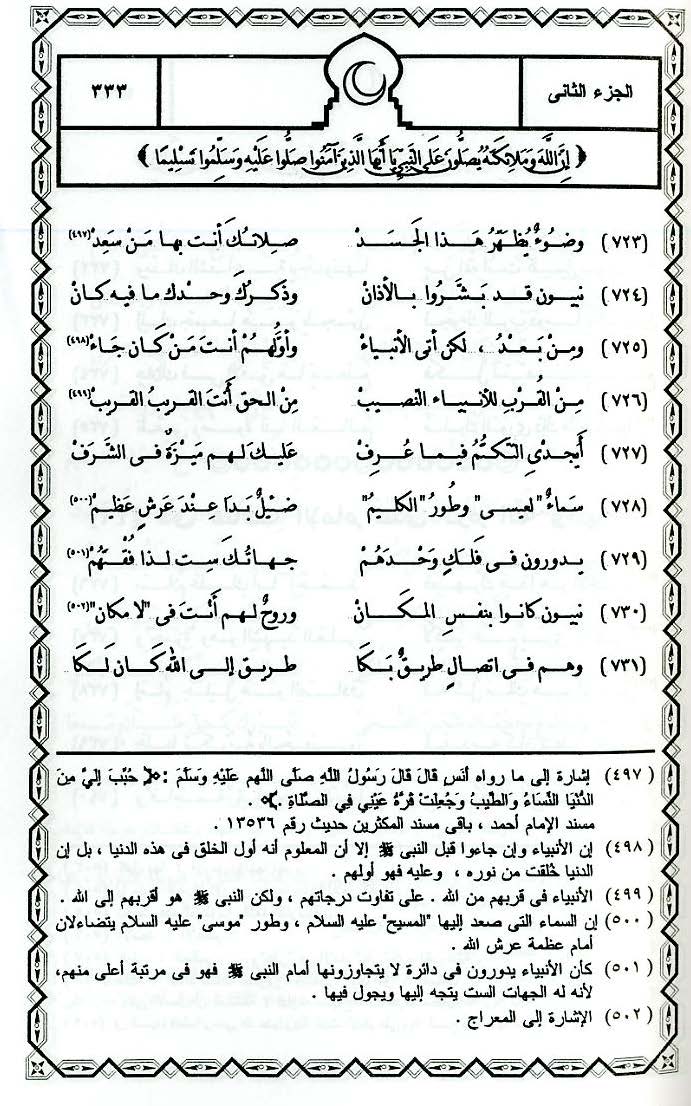 الجزء الثانى
٣٣٣
﴿ إِنَّ اللَّهَ وَمَلَائِكَتَهُ يُصَلُّونَ عَلَى النَّبِيِّ يَا أَيُّهَا الَّذِينَ آمَنُوا صَلُّوا عَلَيْهِ وَسَلِّمُوا تَسْلِيمًا ﴾
(٧٢٣) وضوءٌ يُطَهِّرُ هَذا الجَسَدْ صلاتُكَ أنت بها مَنْ سَعِدْ (٤٩٧)
(٧٢٤) نبيون قد بَشَّرُوا بالأذانْ وذكرُكَ وحدك ما فيه كانْ
(٧٢٥) ومنْ بَعدُ .. لكن أتى الأنبياءْ وأولُهمْ أنتَ مَنْ كان جَاءْ (٤٩٨)
(٧٢٦) مِنْ القُرْبِ للأنبياء النصيبْ مِنْ الحق أنْتَ القريبُ القريبْ (٤٩٩)
(٧٢٧) أيُجدِي التكتُّمُ فيما عُرِفْ عَليكَ لهم مَيزة فى الشَّرَفْ
(٧٢٨) سَماءُ "لعيسى" وطورُ "الكليمْ" ضَئيلٌ بَدَا عِندَ عَرشٍ عَظيمْ (٥٠٠)
(٧٢٩) يدورون فى فَلَكٍ وَحْدَهُمْ جهاتُكَ سِت لذا فُقْتَهُمْ (٥٠١)
(٧٣٠) نبيون كانوا بنفس المكَانْ وروحٌ لهم أنْتَ فى "لا مكان" (٥٠٢)
(٧٣١) وهم فى اتصالِ طريقٌ بكَا طريق إلى الله كان لَكَا
(٤٩٧) إشارة إلى ما رواه أنس قال قَالَ رَسُولُ اللَّهِ صَلَّى اللَّهم عَلَيْهِ وَسَلَّمَ :﴿ حُبِّبَ إِلَيَّ مِنَ
الدُّنْيَا النِّسَاءُ وَالطِّيبُ وَجُعِلَتْ قُرَّةُ عَيْنِي فِي الصَّلَاةِ .﴾ .
مسند الإمام أحمد ، باقى مسند المكثرين حديث رقم ١٣٥٣٦ .
(٤٩٨) إن الأنبياء وإن جاءوا قبل النبى ﷺ إلا أن المعلوم أنه أول الخلق فى هذه الدنيا ، بل إن
الدنيا خُلقت من نوره ، وعليه فهو أولهم .
(٤٩٩) الأنبياء فى قربهم من الله . على تفاوت درجاتهم ، ولكن النبى ﷺ هو أقربهم إلى الله .
(٥٠٠) إن السماء التى صعد إليها "المسيح" عليه السلام ، وطور "موسى" عليه السلام يتضاءلان
أمام عظمة عرش الله .
(٥٠١) كأن الأنبياء يدورون فى دائرة لا يتجاوزونها أمام النبى ﷺ فهو فى مرتبة أعلى منهم،
لأنه له الجهات الست يتجه إليها ويجول فيها .
(٥٠٢) الإشارة إلى المعراج .